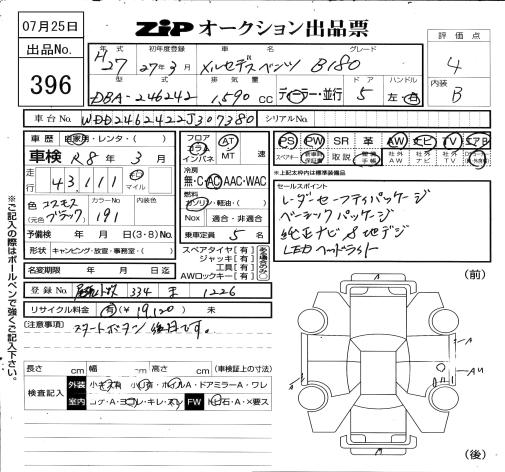 07月25日
出品No.
396
ZiP オークション出品票
評価点
4
内装
B
年式 初年度登録 車名 グレード
H27 27年3月 メルセデスベンツ B180
型式 排気量 ドア ハンドル
DBA-246242 1,590cc ディーラー・並行 5 左・右
車台No. WDD2462422J307380 シリアルNo.
車歴 自家用・レンタ・( )
車検 R8年3月
走行 43,111 km マイル
色 コスモスブラック (元色 ) カラーNo 191 内装色
予備検 年 月 日(3・8)No.
形状 キャンピング・放宣・事務室・( )
名変期限 年 月 日迄
フロア コラム インパネ AT MT 速
冷房 無・C・AC・AAC・WAC
燃料 ガソリン・軽油・( )
Nox 適合・非適合
乗車定員 5名
スペアタイヤ【有】
ジャッキ【有】
工具【有】
AWロックキー【有】
PS PW SR 革 AW ナビ TV エアB
スペアキー 新車時保証書 取説 整備手帳 社外AW 社外ナビ 社外TV
※上記太枠内は標準装備品
セールスポイント
レーダーセーフティパッケージ
ベーシックパッケージ
純正ナビ&地デジ
LEDヘッドライト
登録No. 334 1226
リサイクル料金 有(¥19,120) 未
(注意事項)
スタートボタン 後日です。
長さ cm 幅 cm 高さ cm (車検証上の寸法)
検査記入 外装 ドアミラーA・ワレ
室内 FW
(前)
A
AU
(後)
※ご記入の際はボールペンで強くご記入下さい。